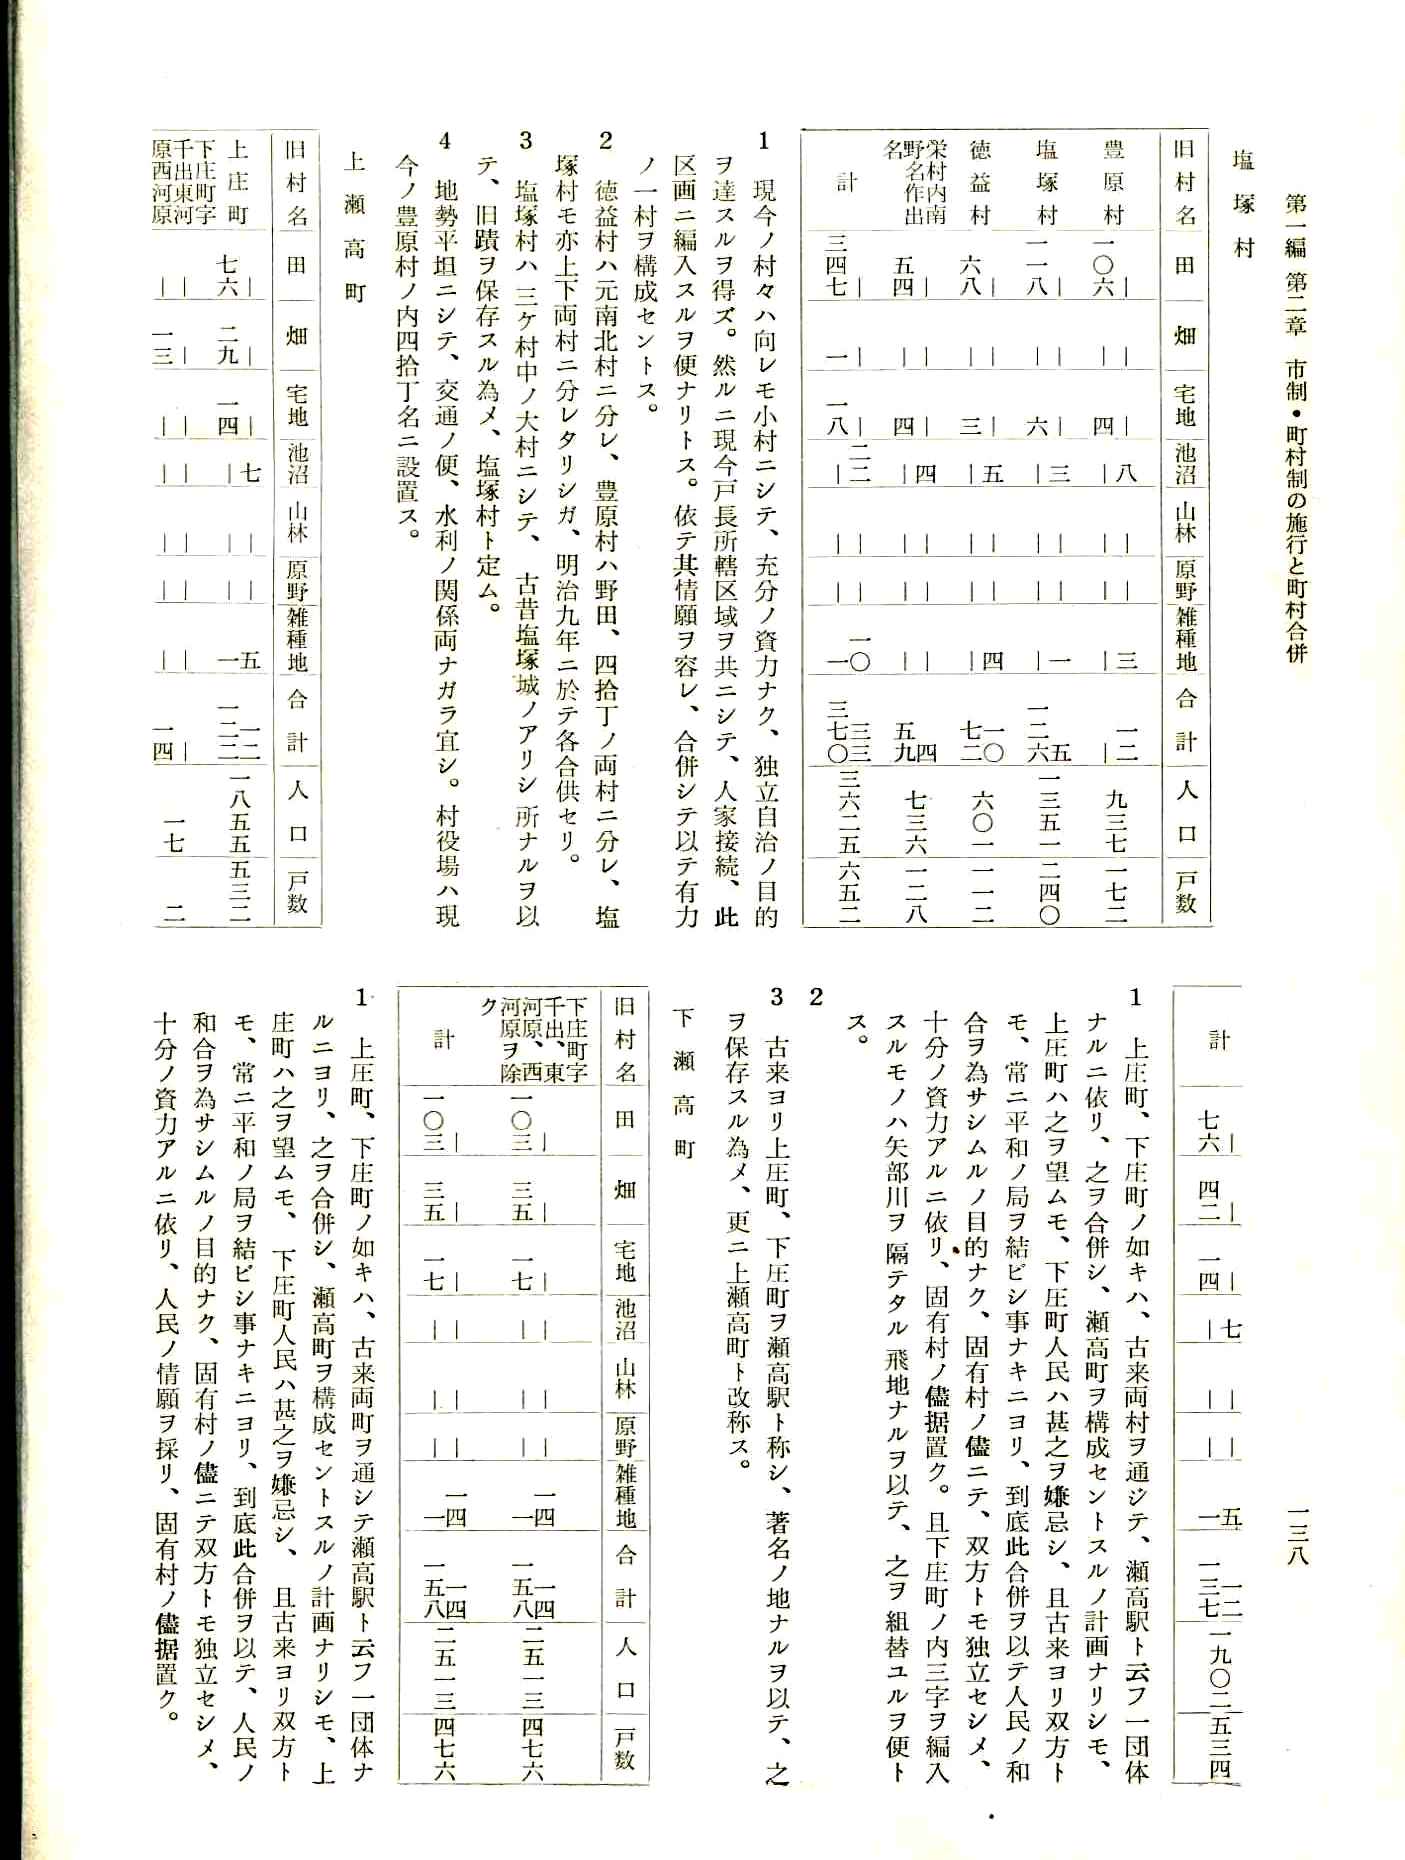 第一編 第二章 市制・町村制の施行と町村合併
一三八
塩塚村
旧村名 田 畑 宅地 池沼 山林 原野 雑種地 合計 人口 戸数
豊原村 ｜ 一〇六 ｜ ｜ ｜ 四 八 ｜ ｜ ｜ ｜ ｜ 三 ｜ 一二 ｜ 九三七 一七二
塩塚村 ｜ 一一八 ｜ ｜ ｜ 六 三 ｜ ｜ ｜ ｜ ｜ 一 ｜ 五 一二六 一三五一 二四〇
徳益村 ｜ 六八 ｜ ｜ ｜ 三 五 ｜ ｜ ｜ ｜ ｜ 四 ｜ 一〇 七二 六〇一 一一二
栄村内南野名作出名 ｜ 五四 ｜ ｜ ｜ 四 四 ｜ ｜ ｜ ｜ ｜ ｜ ｜ 四 五九 七三六 一二八
計 ｜ 三四七 ｜ 一 ｜ 一八 二二 ｜ ｜ ｜ ｜ ｜ 一〇 一 三三 三七〇 三六二五 六五二
1 現今ノ村々ハ向レモ小村ニシテ、充分ノ資力ナク、独立自治ノ目的
ヲ達スルヲ得ズ。然ルニ現今戸長所轄区域ヲ共ニシテ、人家接続、此
区画ニ編入スルヲ便ナリトス。依テ其情願ヲ容レ、合併シテ以テ有力
ノ一村ヲ構成セントス。
2 徳益村ハ元南北村ニ分レ、豊原村ハ野田、四拾丁ノ両村ニ分レ、塩
塚村モ亦上下両村ニ分レタリシガ、明治九年ニ於テ各合供セリ。
3 塩塚村ハ三ケ村中ノ大村ニシテ、古昔塩塚城ノアリシ所ナルヲ以
テ、旧蹟ヲ保存スル為メ、塩塚村ト定ム。
4 地勢平坦ニシテ、交通ノ便、水利ノ関係両ナガラ宜シ。村役場ハ現
今ノ豊原村ノ内四拾丁名ニ設置ス。
上瀬高町
旧村名 田 畑 宅地 池沼 山林 原野 雑種地 合計 人口 戸数
上庄町 ｜ 七六 ｜ 二九 ｜ 一四 七 ｜ ｜ ｜ ｜ ｜ 五 一 一二 一二二 一八五五 五三二
下庄町字千出東河原西河原 ｜ ｜ ｜ 一三 ｜ ｜ ｜ ｜ ｜ ｜ ｜ ｜ ｜ ｜ ｜ 一四 一七 二
計 ｜ 七六 ｜ 四二 ｜ 一四 七 ｜ ｜ ｜ ｜ ｜ 五 一 一二 一三七 一九〇二 五三四
1 上庄町、下庄町ノ如キハ、古来両村ヲ通ジテ、瀬高駅ト云フ一団体
ナルニ依リ、之ヲ合併シ、瀬高町ヲ構成セントスルノ計画ナリシモ、
上庄町ハ之ヲ望ムモ、下庄町人民ハ甚之ヲ嫌忌シ、且古来ヨリ双方ト
モ、常ニ平和ノ局ヲ結ビシ事ナキニヨリ、到底此合併ヲ以テ人民ノ和
合ヲ為サシムルノ目的ナク、固有村ノ儘ニテ、双方トモ独立セシメ、
十分ノ資力アルニ依リ、固有村ノ儘据置ク。且下庄町ノ内三字ヲ編入
スルモノハ矢部川ヲ隔テタル飛地ナルヲ以テ、之ヲ組替ユルヲ便ト
ス。
2
3 古来ヨリ上庄町、下庄町ヲ瀬高駅ト称シ、著名ノ地ナルヲ以テ、之
ヲ保存スル為メ、更ニ上瀬高町ト改称ス。
下瀬高町
旧村名 田 畑 宅地 池沼 山林 原野 雑種地 合計 人口 戸数
下庄町字千出、東河原、西河原ヲ除ク ｜ 一〇三 ｜ 三五 ｜ 一七 ｜ ｜ ｜ ｜ ｜ ｜ 一四 一 一四 一五八 二五一三 四七六
計 ｜ 一〇三 ｜ 三五 ｜ 一七 ｜ ｜ ｜ ｜ ｜ ｜ 一四 一 一四 一五八 二五一三 四七六
1 上庄町、下庄町ノ如キハ、古来両町ヲ通シテ瀬高駅ト云フ一団体ナ
ルニヨリ、之ヲ合併シ、瀬高町ヲ構成セントスルノ計画ナリシモ、上
庄町ハ之ヲ望ムモ、下庄町人民ハ甚之ヲ嫌忌シ、且古来ヨリ双方ト
モ、常ニ平和ノ局ヲ結ビシ事ナキニヨリ、到底此合併ヲ以テ、人民ノ
和合ヲ為サシムルノ目的ナク、固有村ノ儘ニテ双方トモ独立セシメ、
十分ノ資力アルニ依リ、人民ノ情願ヲ採リ、固有村ノ儘据置ク。